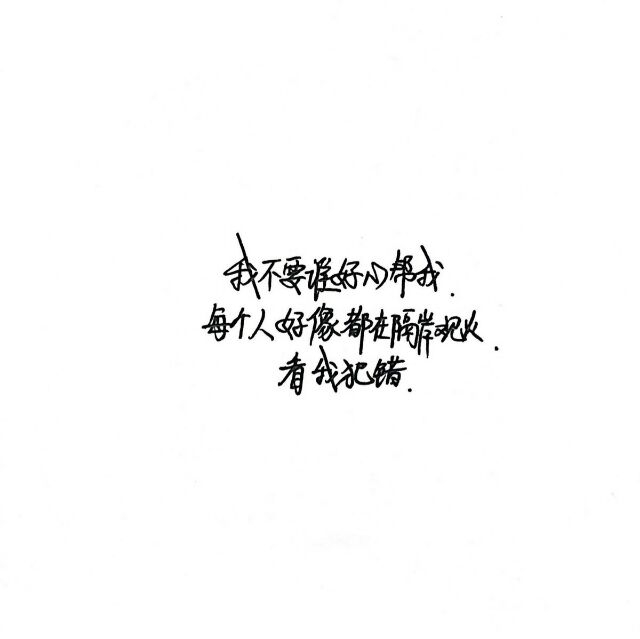 我不要谁好心帮我.
每个人好像都在隔岸观火.
看我犯错.